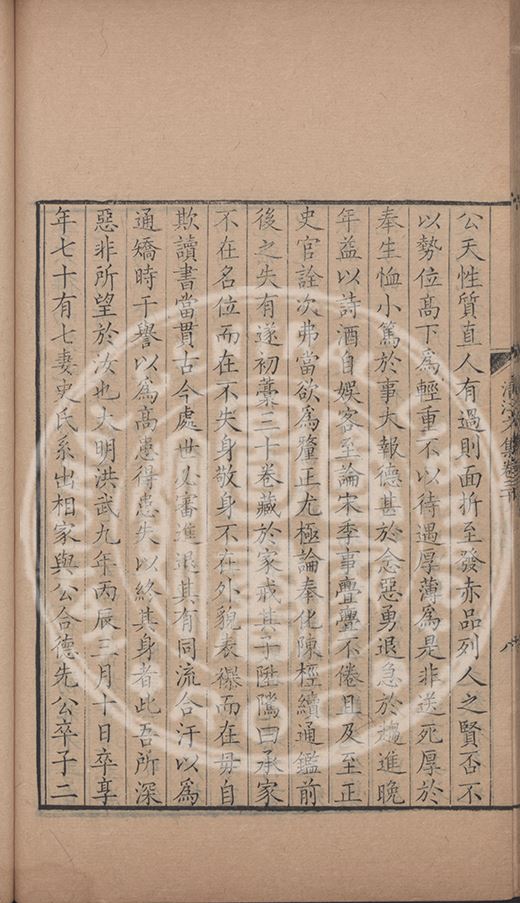 公天性質直人有過則面折至發赤品列人之賢否不
以勢位髙下爲輕重不以待遇厚薄爲是非送死厚於
奉生恤小篤於事大報德甚於念惡勇退急於趨進晚
年益以詩酒自娛客至論宋季事亹亹不倦且及至正
史官詮次弗當欲爲釐正尤極論奉化陳桱續通鑑前
後之失有遂初藁三十卷藏於家戒其子陞隲曰承家
不在名位而在不失身敬身不在外貌表襮而在毋自
欺讀書當貫古今處世必審進退其有同流合汙以爲
通矯時干譽以爲高患得患失以終其身者此吾所深
惡非所望於汝也大明洪武九年丙辰三月十日卒享
年七十有七妻史氏系出相家與公合德先公卒子二